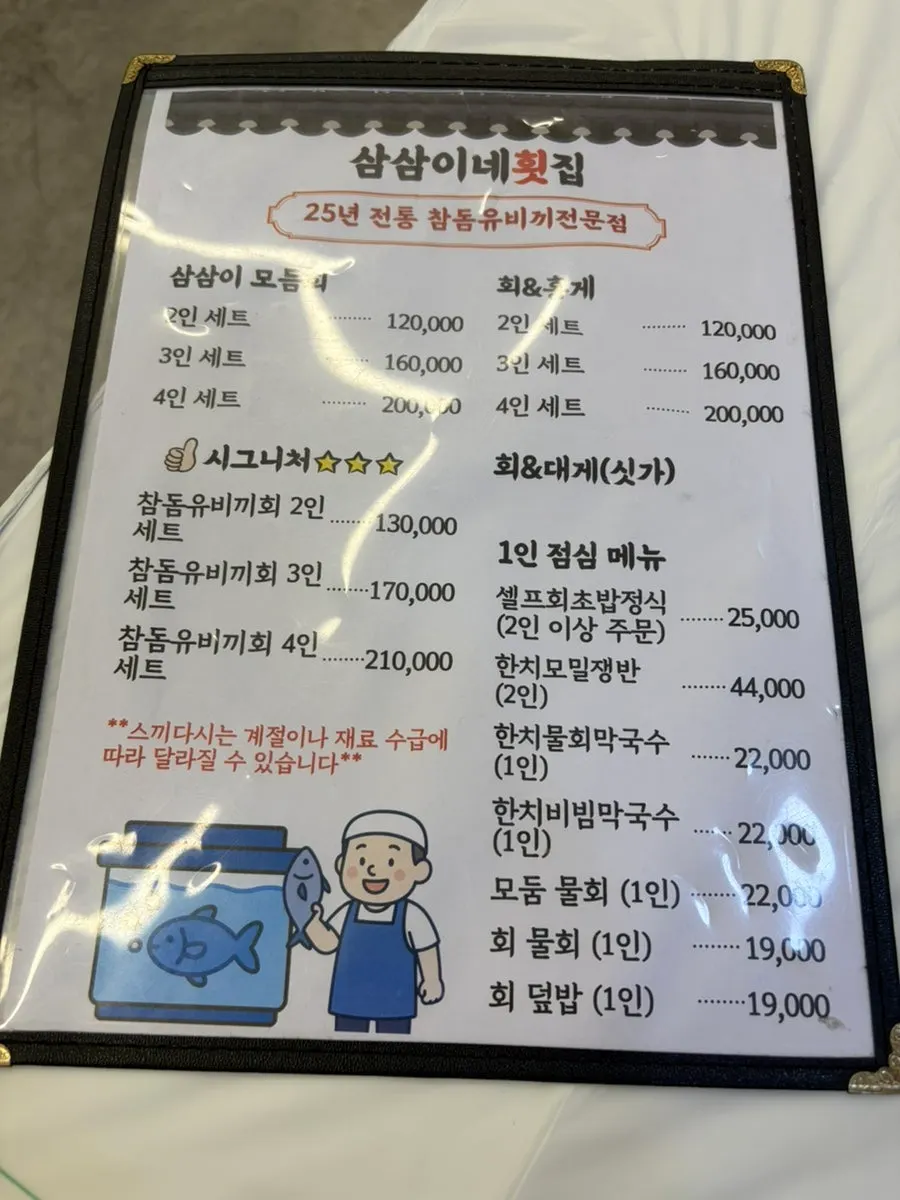 삼삼이네횟집
25년 전통 참돔유비끼전문점
삼삼이 모듬회
2인 세트 ········· 120,000
3인 세트 ········· 160,000
4인 세트 ········· 200,000
👍 시그니처⭐⭐⭐
참돔유비끼회 2인
세트 ········130,000
참돔유비끼회 3인
세트 ········170,000
참돔유비끼회 4인
세트 ········210,000
**스끼다시는 계절이나 재료 수급에
따라 달라질 수 있습니다**
회&홍게
2인 세트 ········· 120,000
3인 세트 ········· 160,000
4인 세트 ········· 200,000
회&대게(싯가)
1인 점심 메뉴
셀프회초밥정식
(2인 이상 주문) ········ 25,000
한치모밀쟁반
(2인) ········ 44,000
한치물회막국수
(1인) ········ 22,000
한치비빔막국수
(1인) ········ 22,000
모둠 물회 (1인) ········ 22,000
회 물회 (1인) ········ 19,000
회 덮밥 (1인) ········19,000